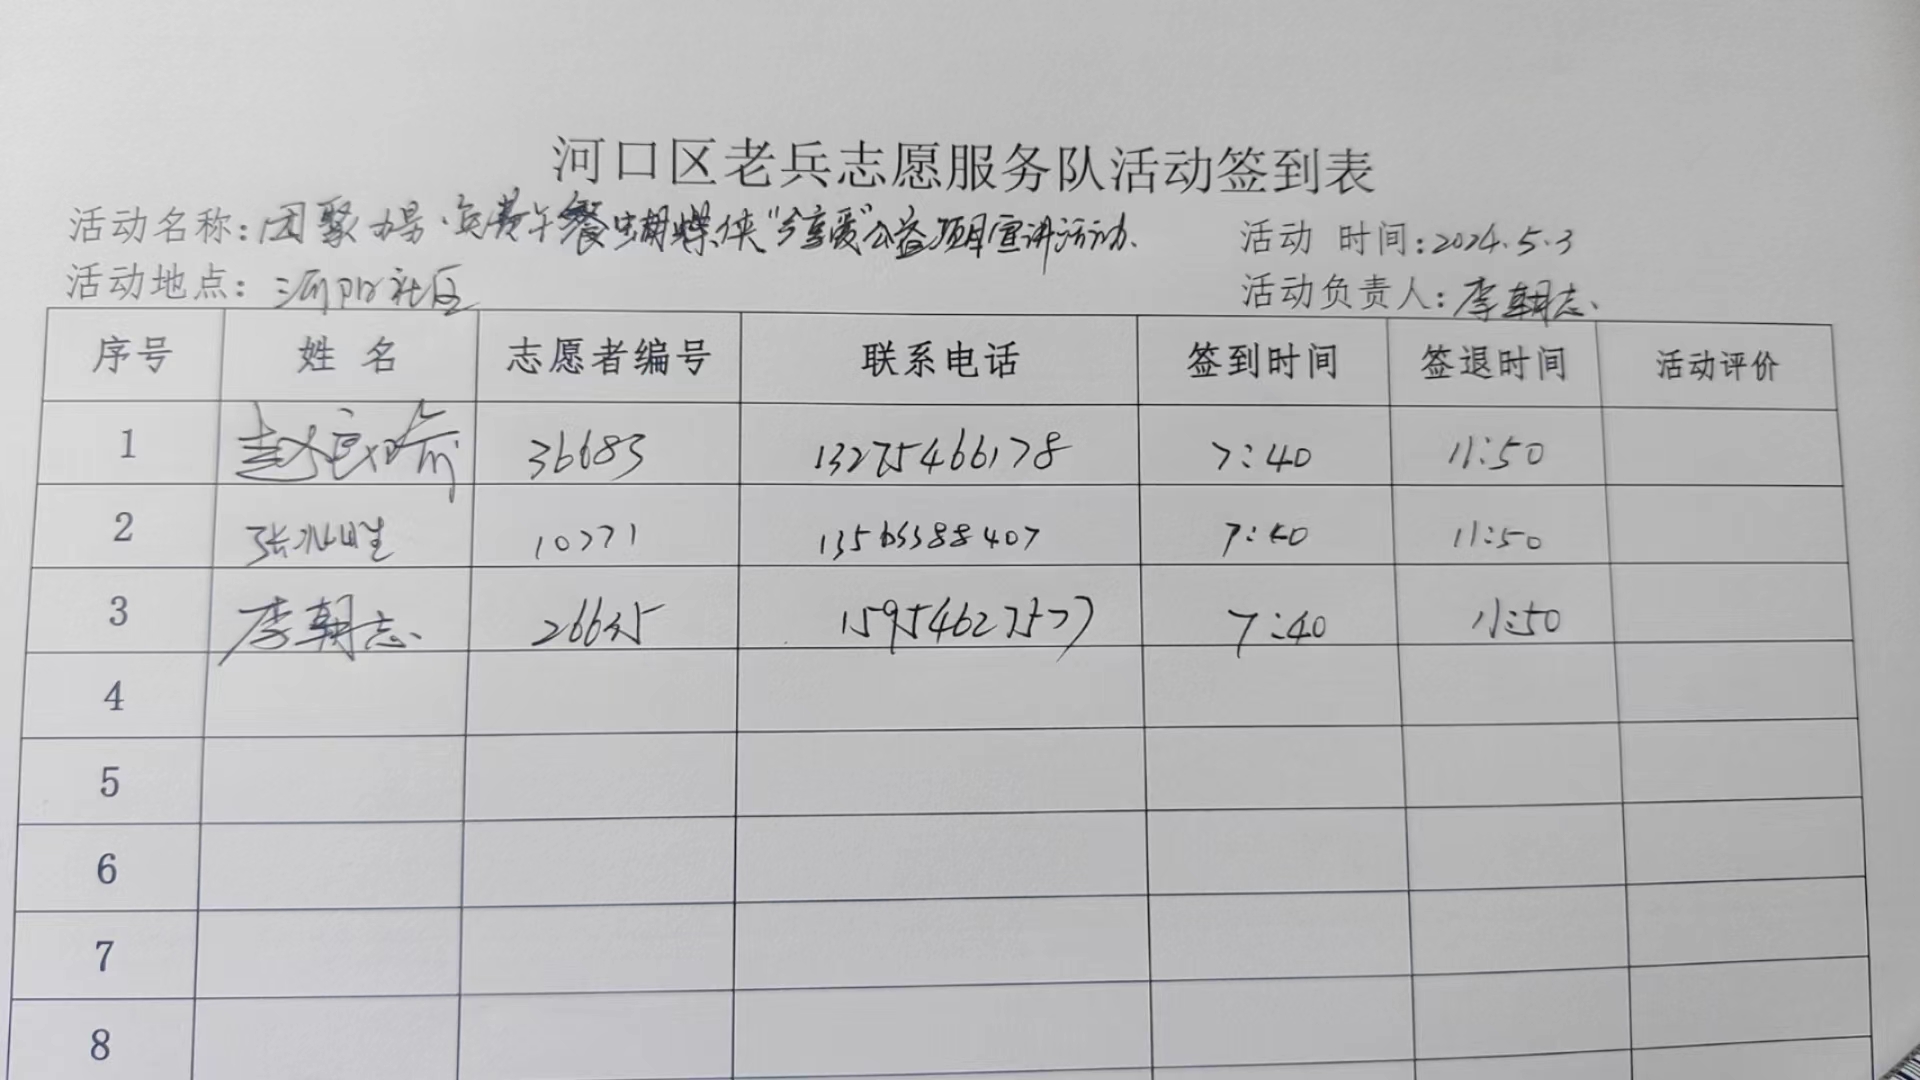 河口区老兵志愿服务队活动签到表
活动名称:团聚力易·免费午餐蝴蝶侠“分享爱”公益项目宣讲活动.
活动 时间:2024.5.3
活动地点: 社区
活动负责人:李朝志.
序号 姓 名 志愿者编号 联系电话 签到时间 签退时间 活动评价
1 赵 36683 13275466178 7:40 11:50
2 张 胜 10771 7:40 11:50
3 李朝志. 26635 15954627577 7:40 11:50
4
5
6
7
8